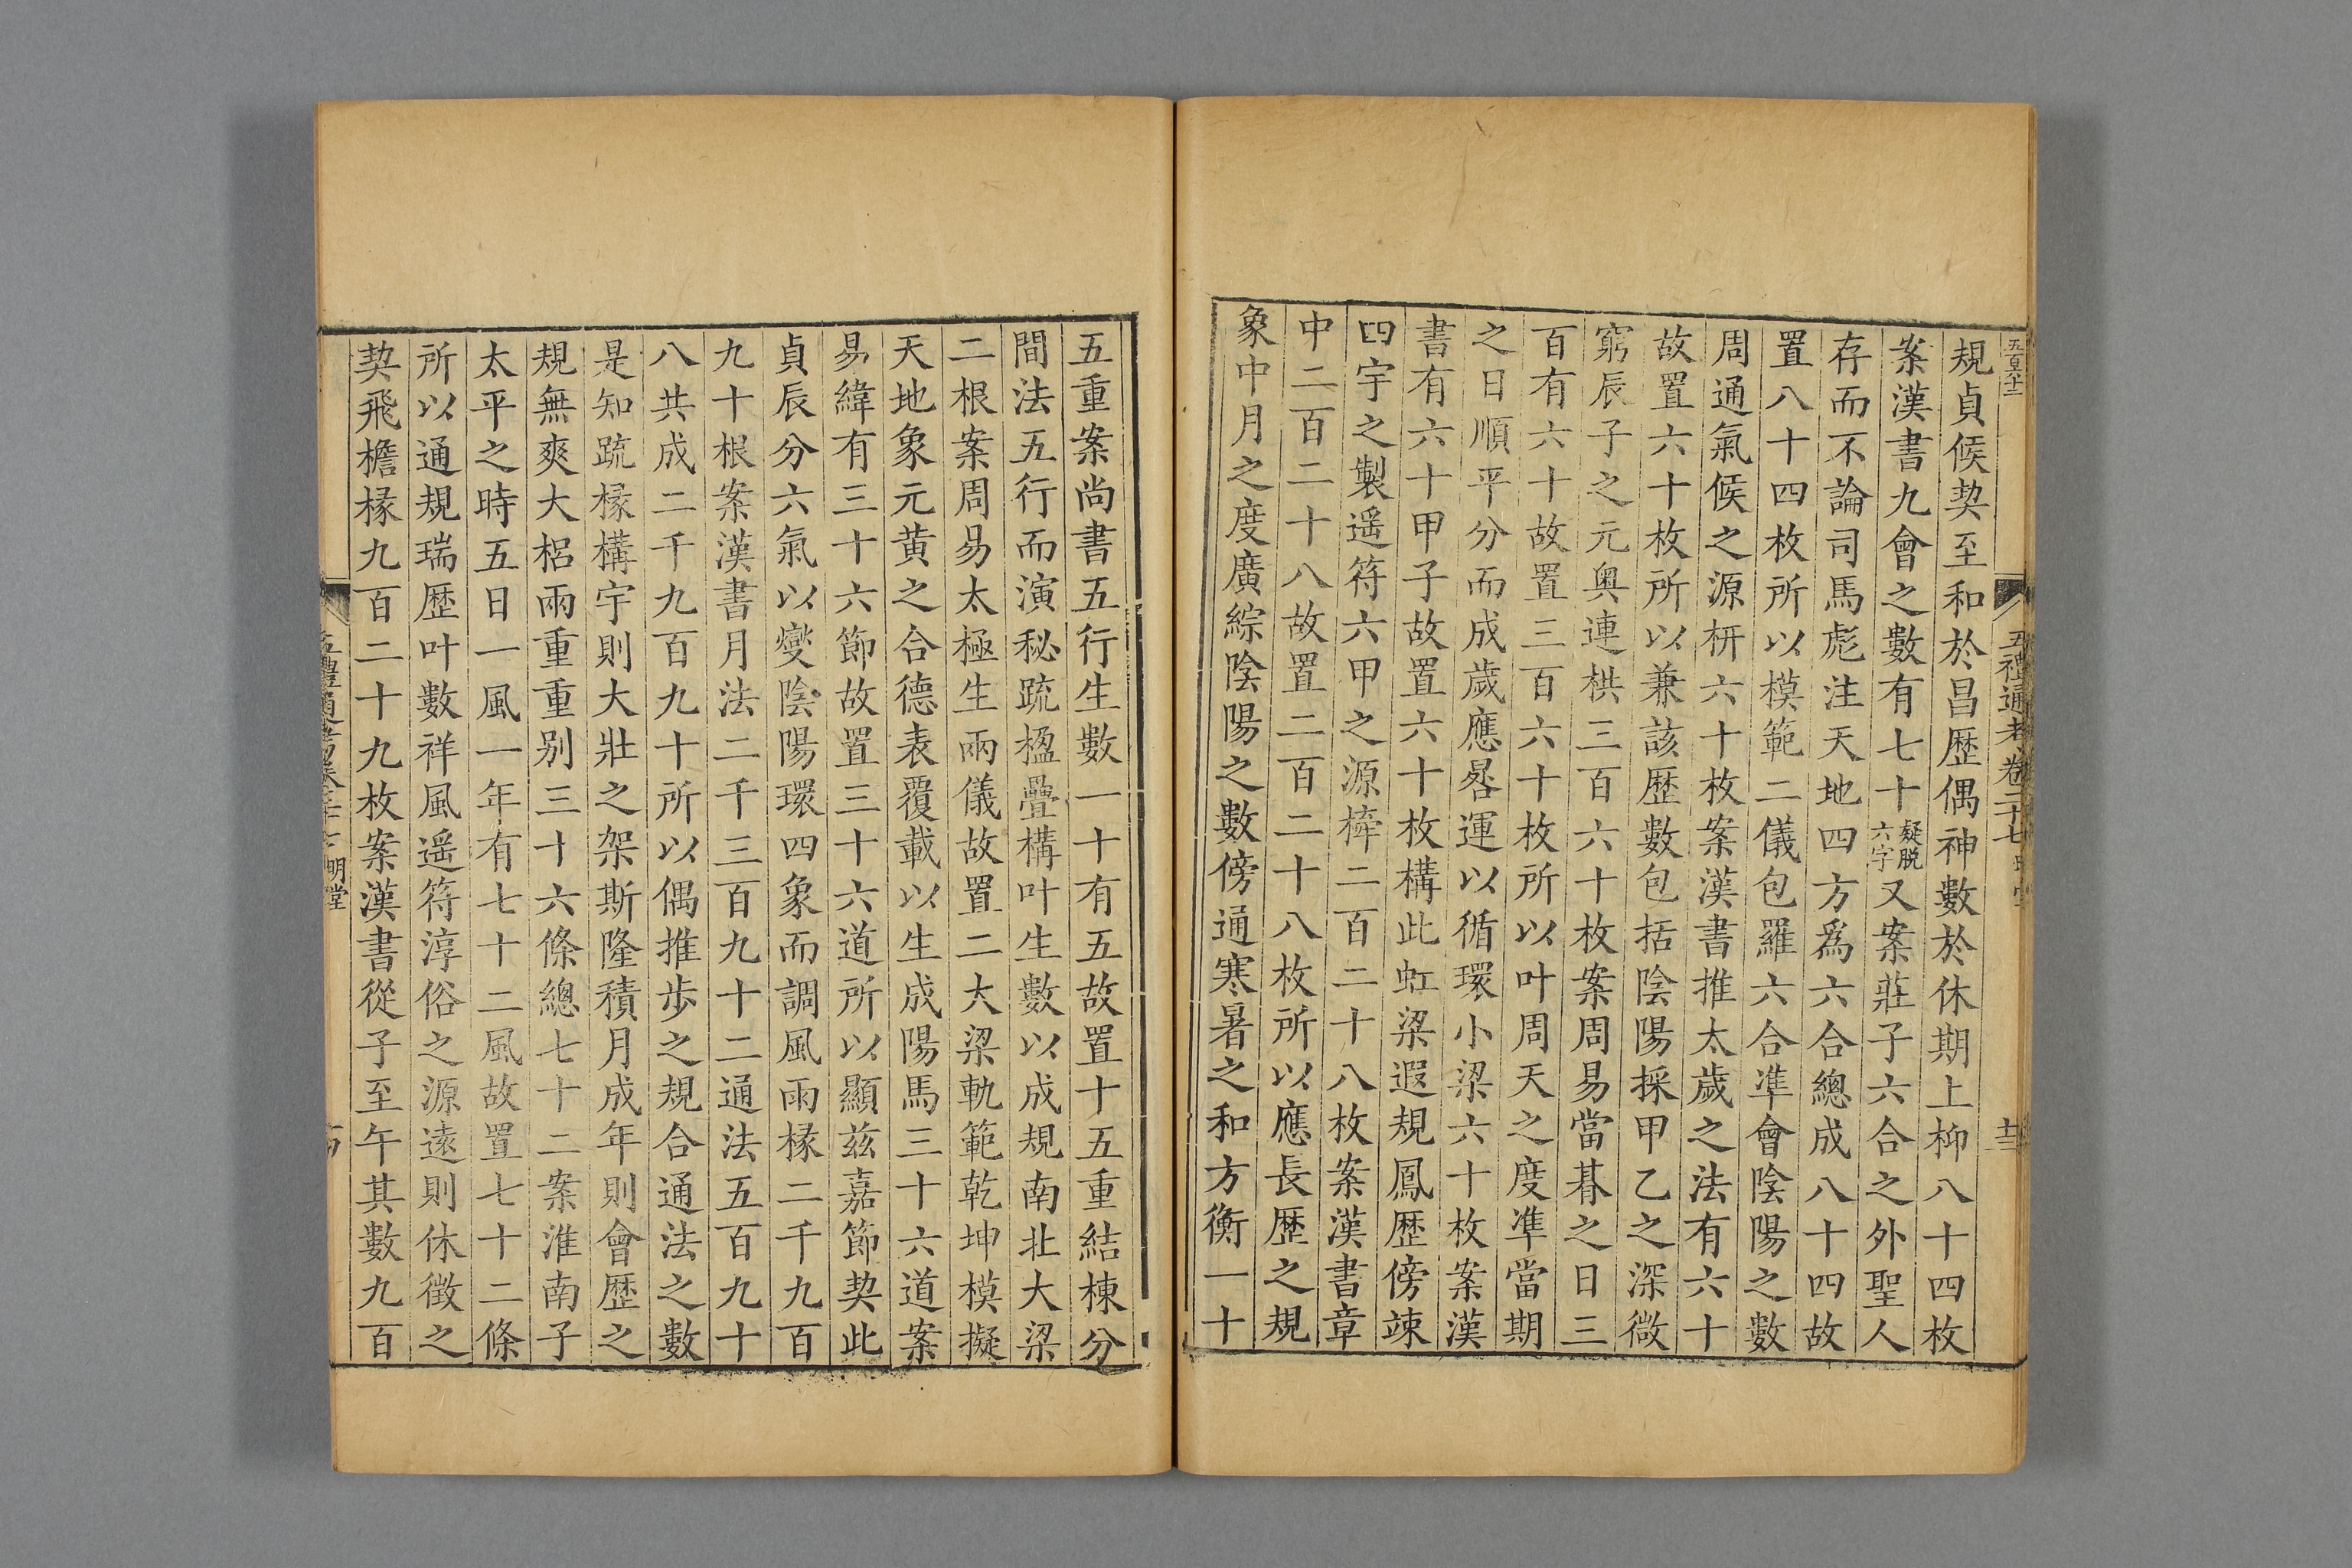 五禮通考卷二十七
規貞候契至和於昌歴偶神數於休期上枊八十四枚
案漢書九會之數有七十疑脱六字又案莊子六合之外聖人
存而不論司馬彪注天地四方爲六合總成八十四故
置八十四枚所以模範二儀包羅六合準會陰陽之數
周通氣候之源枅六十枚案漢書推太歲之法有六十
故置六十枚所以兼該歴數包括陰陽採甲乙之深微
窮辰子之元奥連栱三百六十枚案周易當朞之日三
百有六十故置三百六十枚所以叶周天之度準當期
之日順平分而成歲應晷運以循環小梁六十枚案漢
書有六十甲子故置六十枚構此虹梁遐規鳳歴傍竦
四宇之製遥符六甲之源㭼二百二十八枚案漢書章
中二百二十八故置二百二十八枚所以應長歴之規
象中月之度廣綜陰陽之數傍通寒暑之和方衡一十
五重案尚書五行生數一十有五故置十五重結棟分
間法五行而演秘疏楹疊構叶生數以成規南北大梁
二根案周易太極生兩儀故置二大梁軌範乾坤模擬
天地象元黄之合德表覆載以生成陽馬三十六道案
易緯有三十六節故置三十六道所以顯兹嘉節契此
貞辰分六氣以燮陰陽環四象而調風雨椽二千九百
九十根案漢書月法二千三百九十二通法五百九十
八共成二千九百九十所以偶推歩之規合通法之數
是知疏椽構宇則大壯之架斯隆積月成年則會歴之
規無爽大梠兩重重别三十六條總七十二案淮南子
太平之時五日一風一年有七十二風故置七十二條
所以通規瑞歴叶數祥風遥符淳俗之源遠則休徵之
契飛檐椽九百二十九枚案漢書從子至午其數九百
明堂